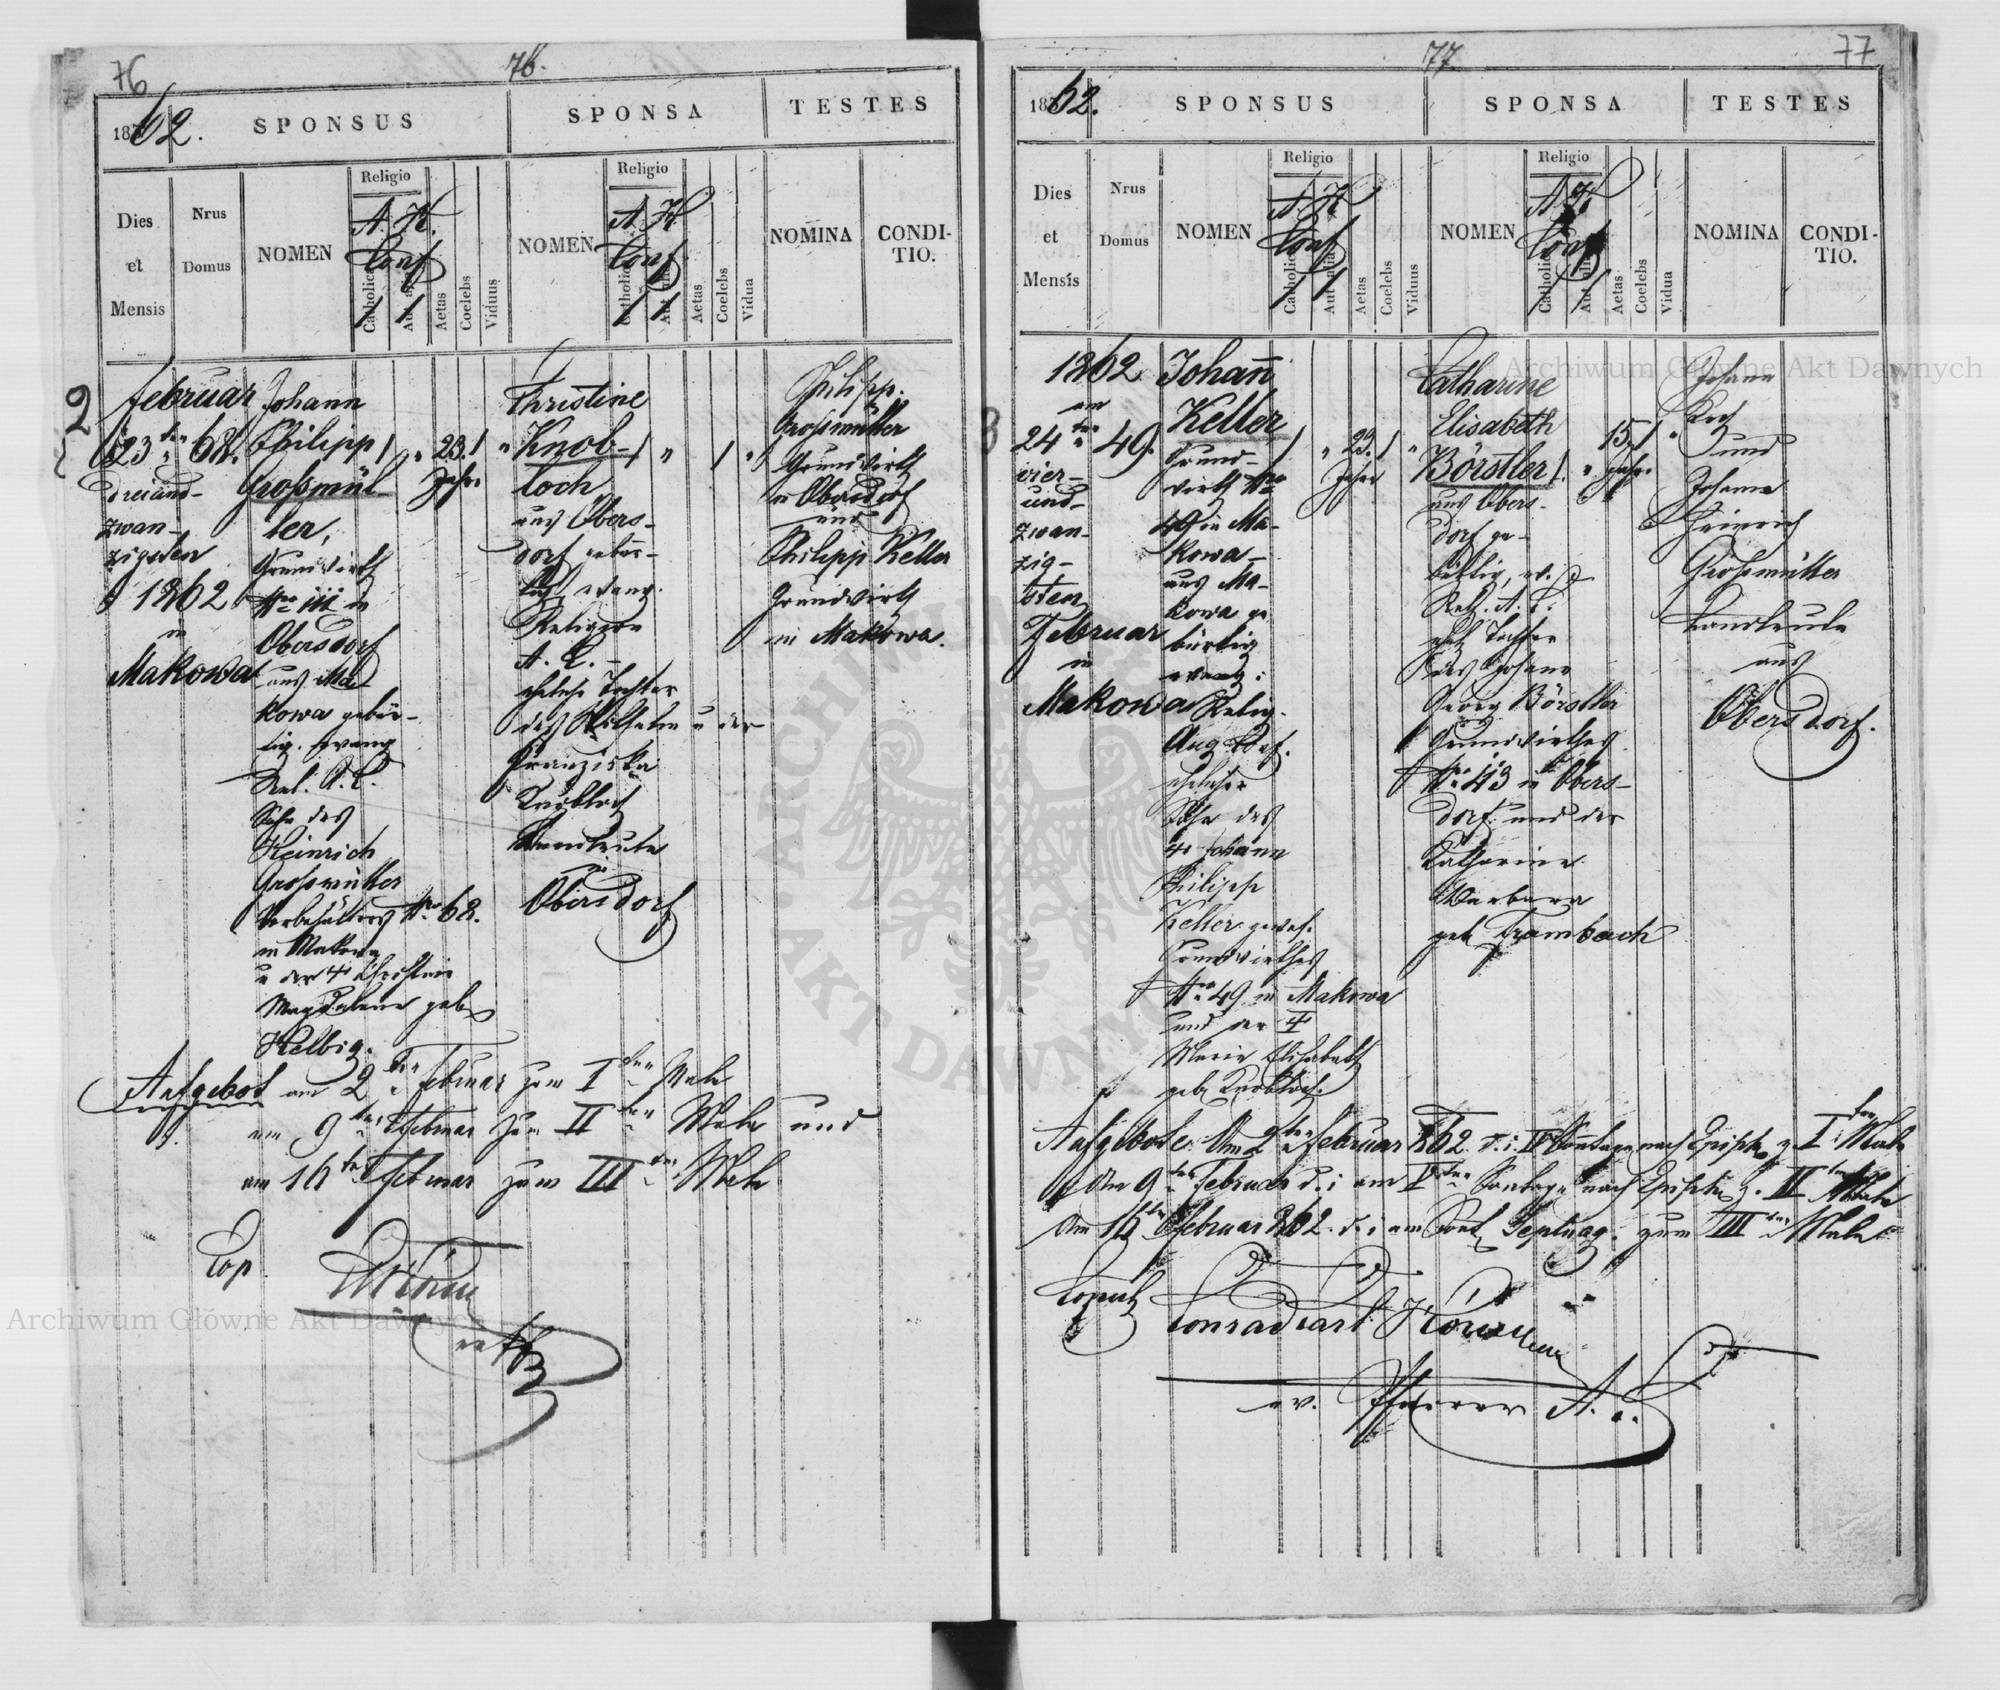 76
76.
1862.
SPONSUS
SPONSA
TESTES
Dies
et
Mensis
Nrus
Domus
NOMEN
Religio
A. K.
Conf
Catholica
Aut alia
Aetas
Coelebs
Viduus
NOMEN
Religio
A. K.
Conf
Catholica
Aut alia
Aetas
Coelebs
Vidua
NOMINA
CONDI-
TIO.
2
Februar
23ten
dreiund-
zwan-
zigsten
1862
in
Makowa
68.
Johann
Philipp
Großmül
ler,
Grundwirth
Nro in
Obersdorf
aus Ma
kowa gebür-
tig. evang
Rel. A. C.
Sohn des
Heinrich
Großmüller
Nro 68.
in Makowa
u der † Christine
Magdalena geb
Helbig.
23.
Jahre
Christine
Knob-
loch
aus Obers-
dorf gebür-
tig, evang.
Religion
A. C. -
eheliche Tochter
des Wilhelm u der
Franziska
Knobloch
Landleute
in
Obersdorf
Philipp
Großmüller
Grundwirth
in Obersdorf
und
Philipp Keller
Grundwirth
in Makowa.
Aufgebot am 2ten Februar zum Iten Male
am 9ten Februar zum IIten Male und
am 16ten Februar zum IIIten Male
Cop.
77
77
1862.
SPONSUS
SPONSA
TESTES
Dies
et
Mensis
Nrus
Domus
NOMEN
Religio
A. K.
Conf
Catholica
Aut alia
Aetas
Coelebs
Viduus
NOMEN
Religio
A. K.
Conf
Catholica
Aut alia
Aetas
Coelebs
Vidua
NOMINA
CONDI-
TIO.
3
1862
am
24ten
vier-
und-
zwan-
zig-
sten
Februar
in
Makowa
49.
Johann
Keller
Grund-
wirth Nro
49 in Ma-
kowa -
aus Ma-
kowa ge
bürtig
evang:
Relig.
Aug Conf.
ehelicher
Sohn des
† Johann
Philipp
Keller gewes.
Grundwirthes
Nro 49 in Makowa
und der †
Maria Elisabeth
geb. Knobloch.
29.
Jahre
Catharine
Elisabeth
Börstler
aus Obers-
dorf ge-
bürtig, ev.
Rel. A. C.
ehel Tochter
des Johann
Georg Börstler
Grundwirthes
Nro 43 in Obers-
dorf und der
Katharina
Barbara
geb Trambach
15.
Jahre
Johann
und
Johann
Heinrich
Großmüller
Landleute
aus
Obersdorf.
Aufgebote: Am 2ten Februar 862. d. i. IV Sonntage nach Epiph. z. Iten Male
Am 9ten Februar d. i. am Vten Sontage nach Epiph. z. IIten Male
Am 16ten Februar 862. d. i. am Sont. Septuag. zum IIIten Male
Copul.
Conrad Carl
ev. Pfarrer A. C.
Archiwum Główne Akt Dawnych
Archiwum Główne Akt Dawnych
ARCHIWUM
AKT DAWNYCH